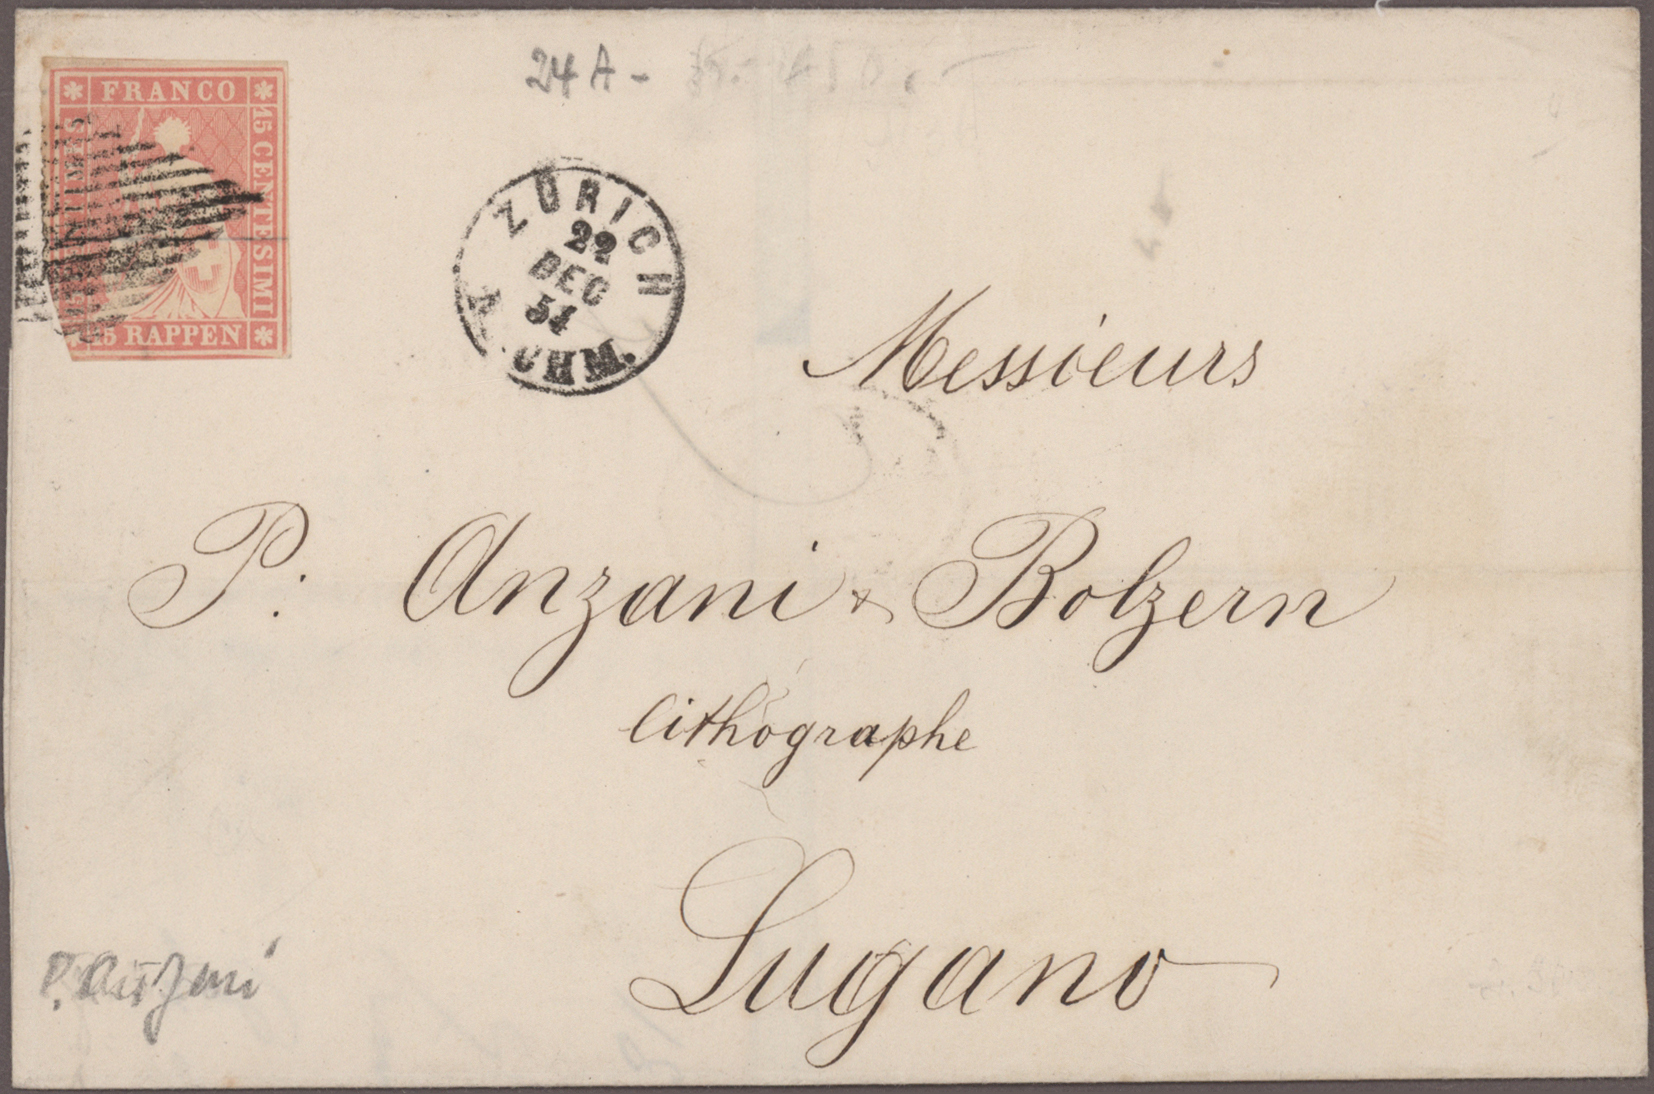 24 A -
FRANCO
15 CENTESIMI
15 RAPPEN
ZÜRICH
22
DEC
54
NCHM.
Messieurs
P. Anzani & Bolzern
lithographe
Lugano
P. Anzani